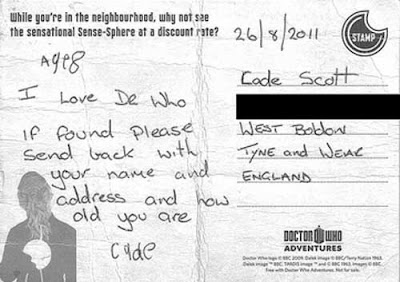 While you're in the neighbourhood, why not see
the sensational Sense-Sphere at a discount rate?
26/8/2011
STAMP
Age8
I Love DR Who
If found Please
Send back with
your name and
address and how
old you are
Cade Scott
West Boldon
Tyne and Wear
ENGLAND
DOCTOR WHO
ADVENTURES
Doctor Who logo © BBC 2009. Dalek image © BBC/Terry Nation 1963.
Free with Doctor Who Adventures. Not for sale.